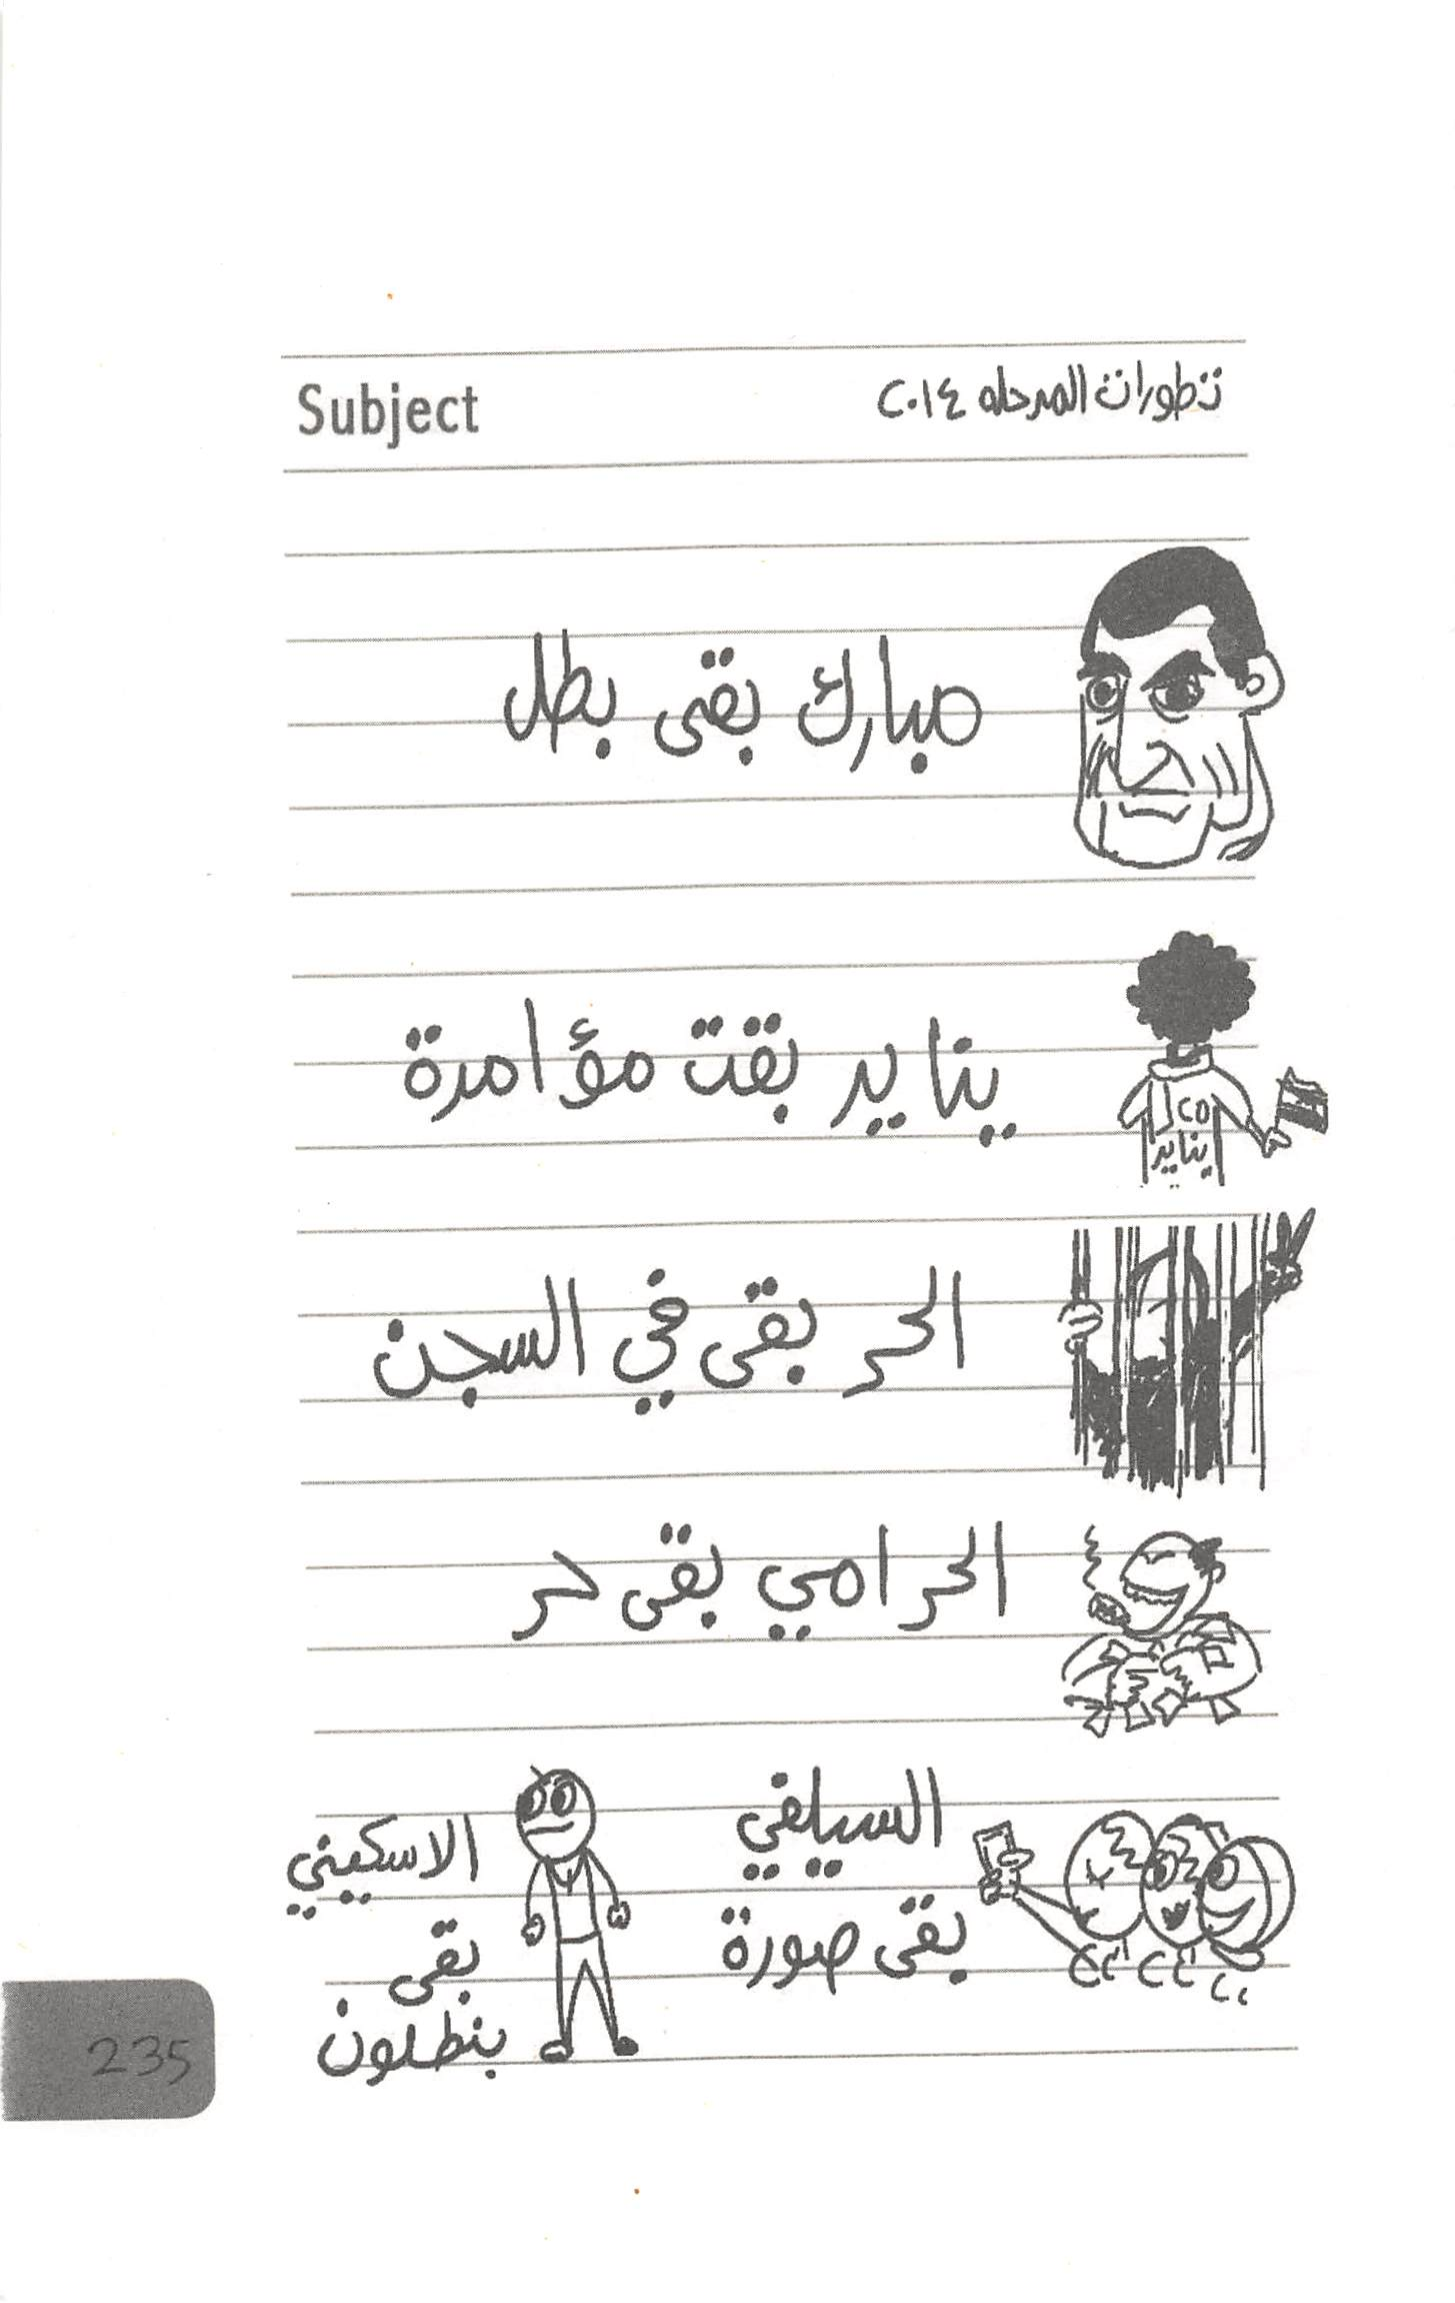 Subject
تطورات المرحله ٢٠١٤
مبارك بقى بطل
يناير بقت مؤامرة
٢٥
يناير
الحر بقى في السجن
الحرامي بقى حر
السيلفي
بقى صورة
الاسكيني
بقى
بنطلون
235